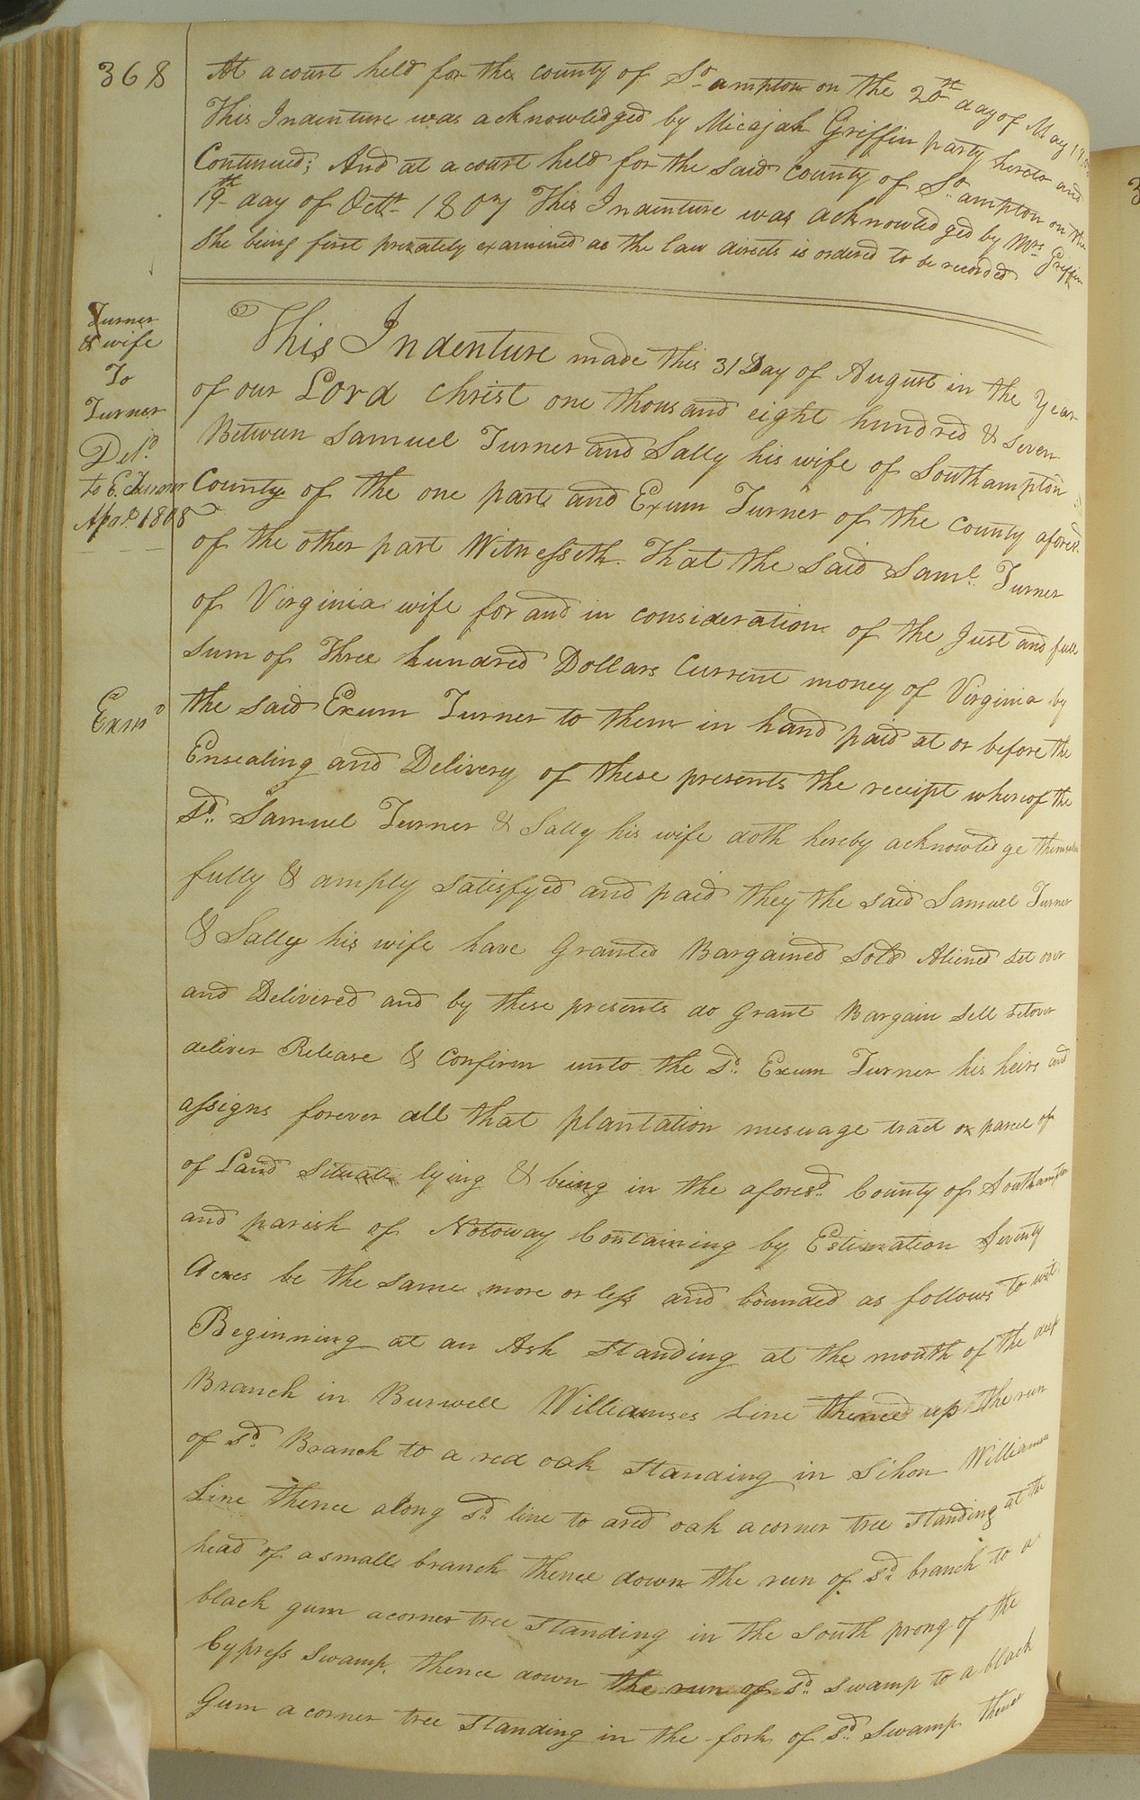 368
At a court held for the county of So.ampton on the 20th day of May 180
This Indenture was acknowledged by Micajah Griffin party hereto and
Continued; And at a court held for the said County of So.ampton on the
19th day of Octr. 1807 This Indenture was acknowledged by Mrs. Griffin
She being first privately examined as the law directs is ordered to be recorded
Turner
& wife
To
Turner
Deld.
to E. Turner
Apr. 1808
Exmd
This Indenture made this 31 Day of August in the Year
of our Lord Christ one thousand eight hundred & seven
Between Samuel Turner and Sally his wife of Southampton
County of the one part and Exum Turner of the County aforesd.
of the other part Witnesseth. That the said Saml. Turner
of Virginia wife for and in consideration of the Just and full
sum of Three hundred Dollars Current money of Virginia by
the said Exum Turner to them in hand paid at or before the
Ensealing and Delivery of these presents the receipt whereof the
sd. Samuel Turner & Sally his wife doth hereby acknowledge themselves
fully & amply satisfyed and paid they the said Samuel Turner
& Sally his wife have Granted Bargained Sold Aliened set over
and Delivered and by these presents do Grant Bargain sell setover
deliver Release & Confirm unto the sd. Exum Turner his heirs and
assigns forever all that plantation mesuage tract or parcel of
of Land situate lying & being in the aforesd. County of Southampton
and parish of Notoway Containing by Estimation Seventy
Acres be the same more or less and bounded as follows to wit
Beginning at an Ash standing at the mouth of the deep
Branch in Burwell Williamses Line thence up the run
of sd. Branch to a red oak standing in Sihon Williams
Line thence along sd. line to ared oak acorner tree standing at the
head of asmall branch thence down the run of sd. branch to a
black gum acorner tree standing in the south prong of the
Cypress swamp, thence down the run of sd. swamp to a black
Gum acorner tree standing in the fork of sd. swamp thence